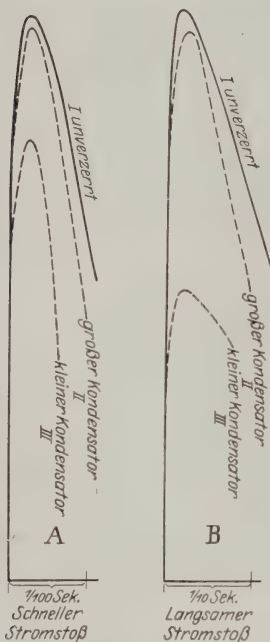 I unverzerrt
großer Kondensator
II
kleiner Kondensator
III
A
1/100 Sek.
Schneller
Stromstoß
I unverzerrt
großer Kondensator
II
kleiner Kondensator
III
B
1/10 Sek.
Langsamer
Stromstoß